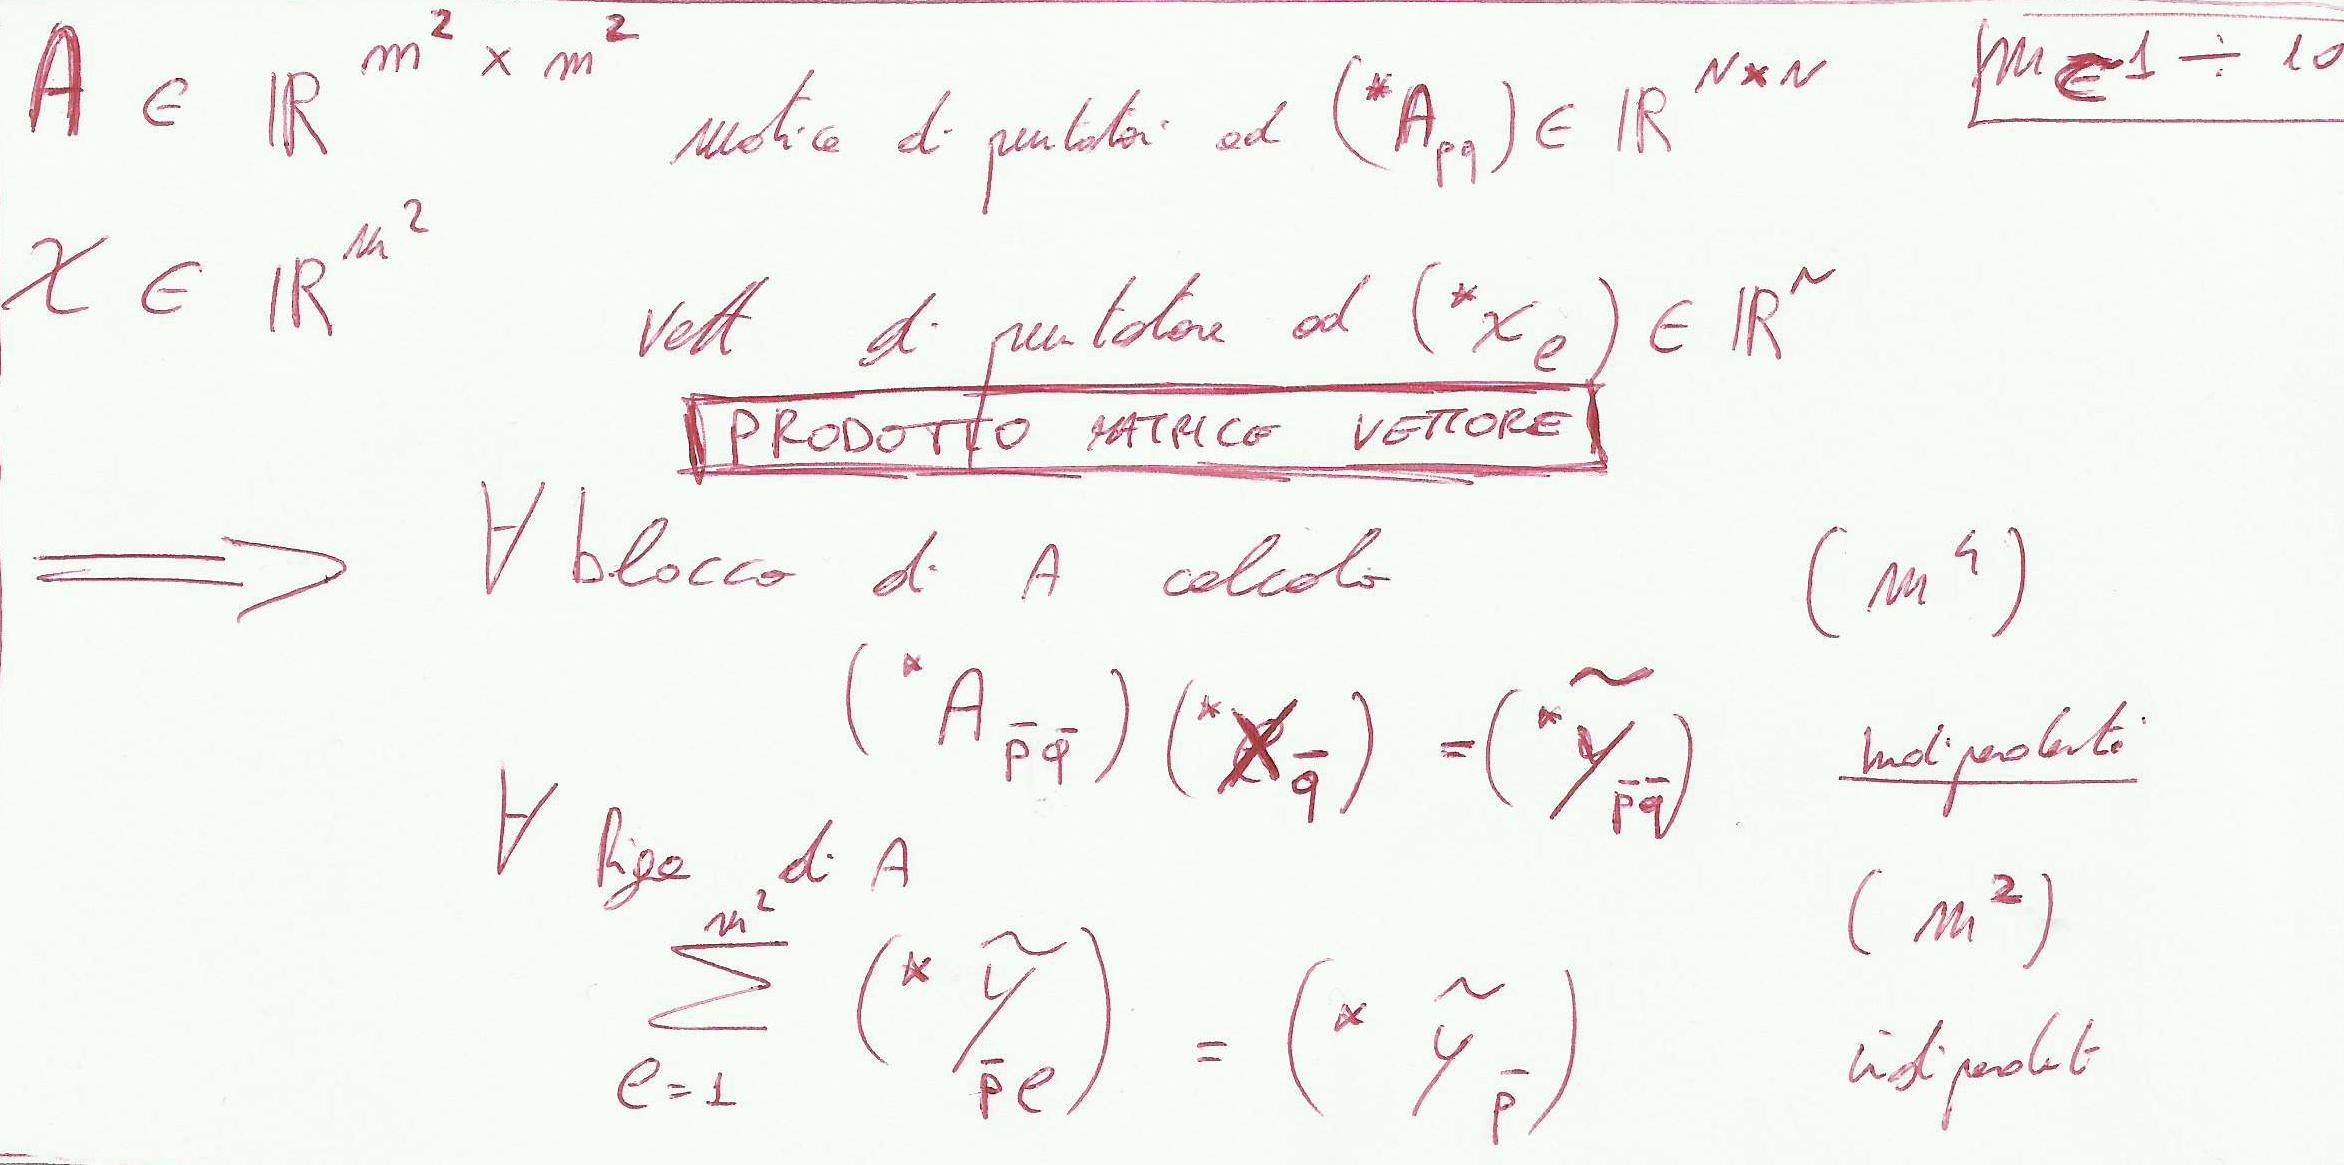 A ∈ ℝ^{m² × m²} matrice di puntatori ad (*A_{pq}) ∈ ℝ^{N×N} m ∈ 1 ÷ 10
x ∈ ℝ^{m²} vett di puntatore ad (*x_e) ∈ ℝ^N
PRODOTTO MATRICE VETTORE
⟹ ∀ blocco di A calcolo (m⁴)
(*A_{p̄q̄}) (*X_{q̄}) = (*ỹ_{p̄q̄}) indipendenti
∀ Riga di A (m²)
∑_{e=1}^{m²} (*ỹ_{p̄e}) = (*ỹ_{p̄}) indipendent